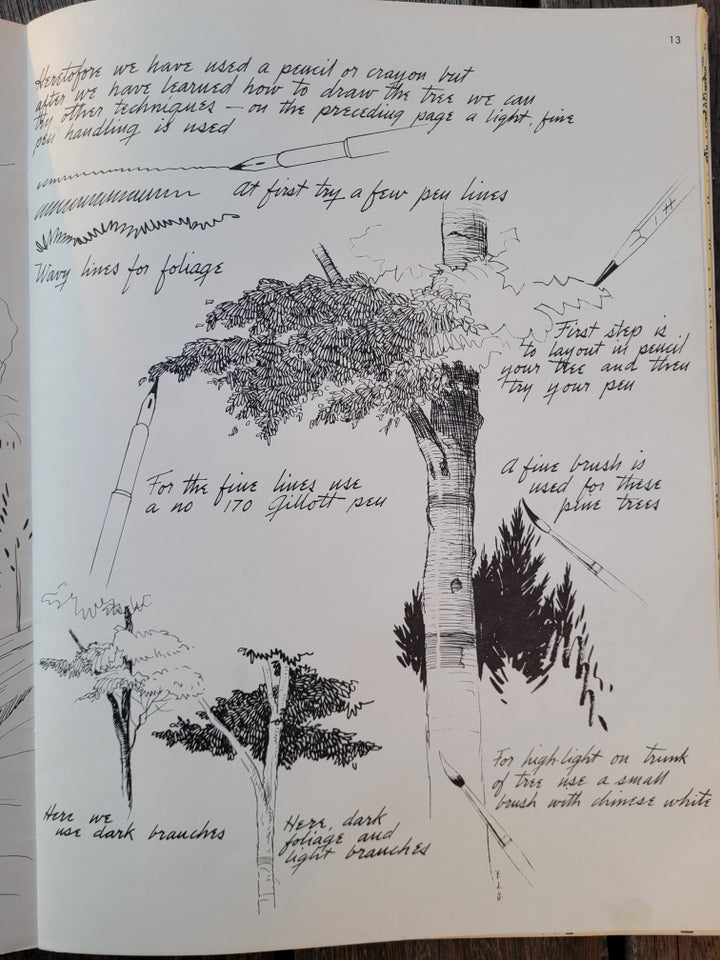 13
Heretofore we have used a pencil or crayon but
after we have learned how to draw the tree we can
try other techniques — on the preceding page a light, fine
pen handling is used
At first try a few pen lines
Wavy lines for foliage
4H
First step is
to layout in pencil
your tree and then
try your pen
For the fine lines use
a no 170 Gillott pen
A fine brush is
used for these
pine trees
For high-light on trunk
of tree use a small
brush with chinese white
Here we
use dark branches
Here, dark
foliage and
light branches